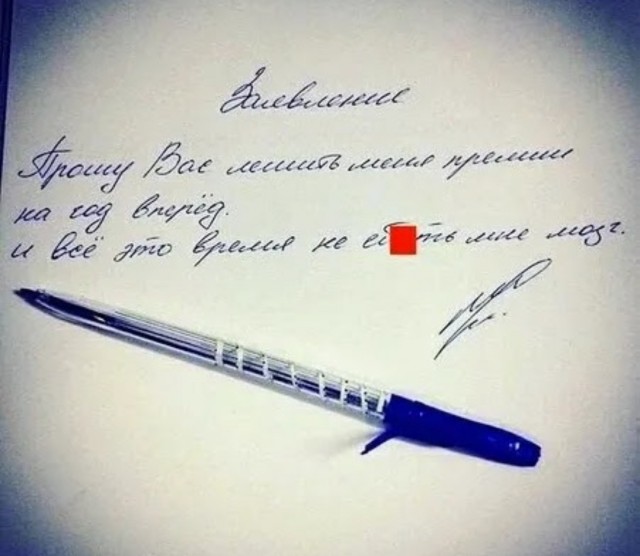 Заявление
Прошу Вас лишить меня премии
на год вперёд.
и всё это время не еб ть мне мозг.